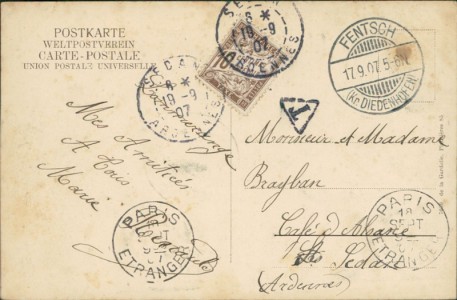 POSTKARTE
WELTPOSTVEREIN
CARTE-POSTALE
UNION POSTALE UNIVERSELLE
SEDAN
8 *
19-9
07
ARDENNES
10
SEDAN
8 *
19-9
07
ARDENNES
FENTSCH
17.9.07. 5-6N
(Kr. DIEDENHOFEN)
T
Mes Amitiés
A tous
Marie
Monsieur et Madame
Café d'Alsace
Sedan
Ardennes
PARIS
ETRANGER
PARIS
18
SEPT
ETRANGER